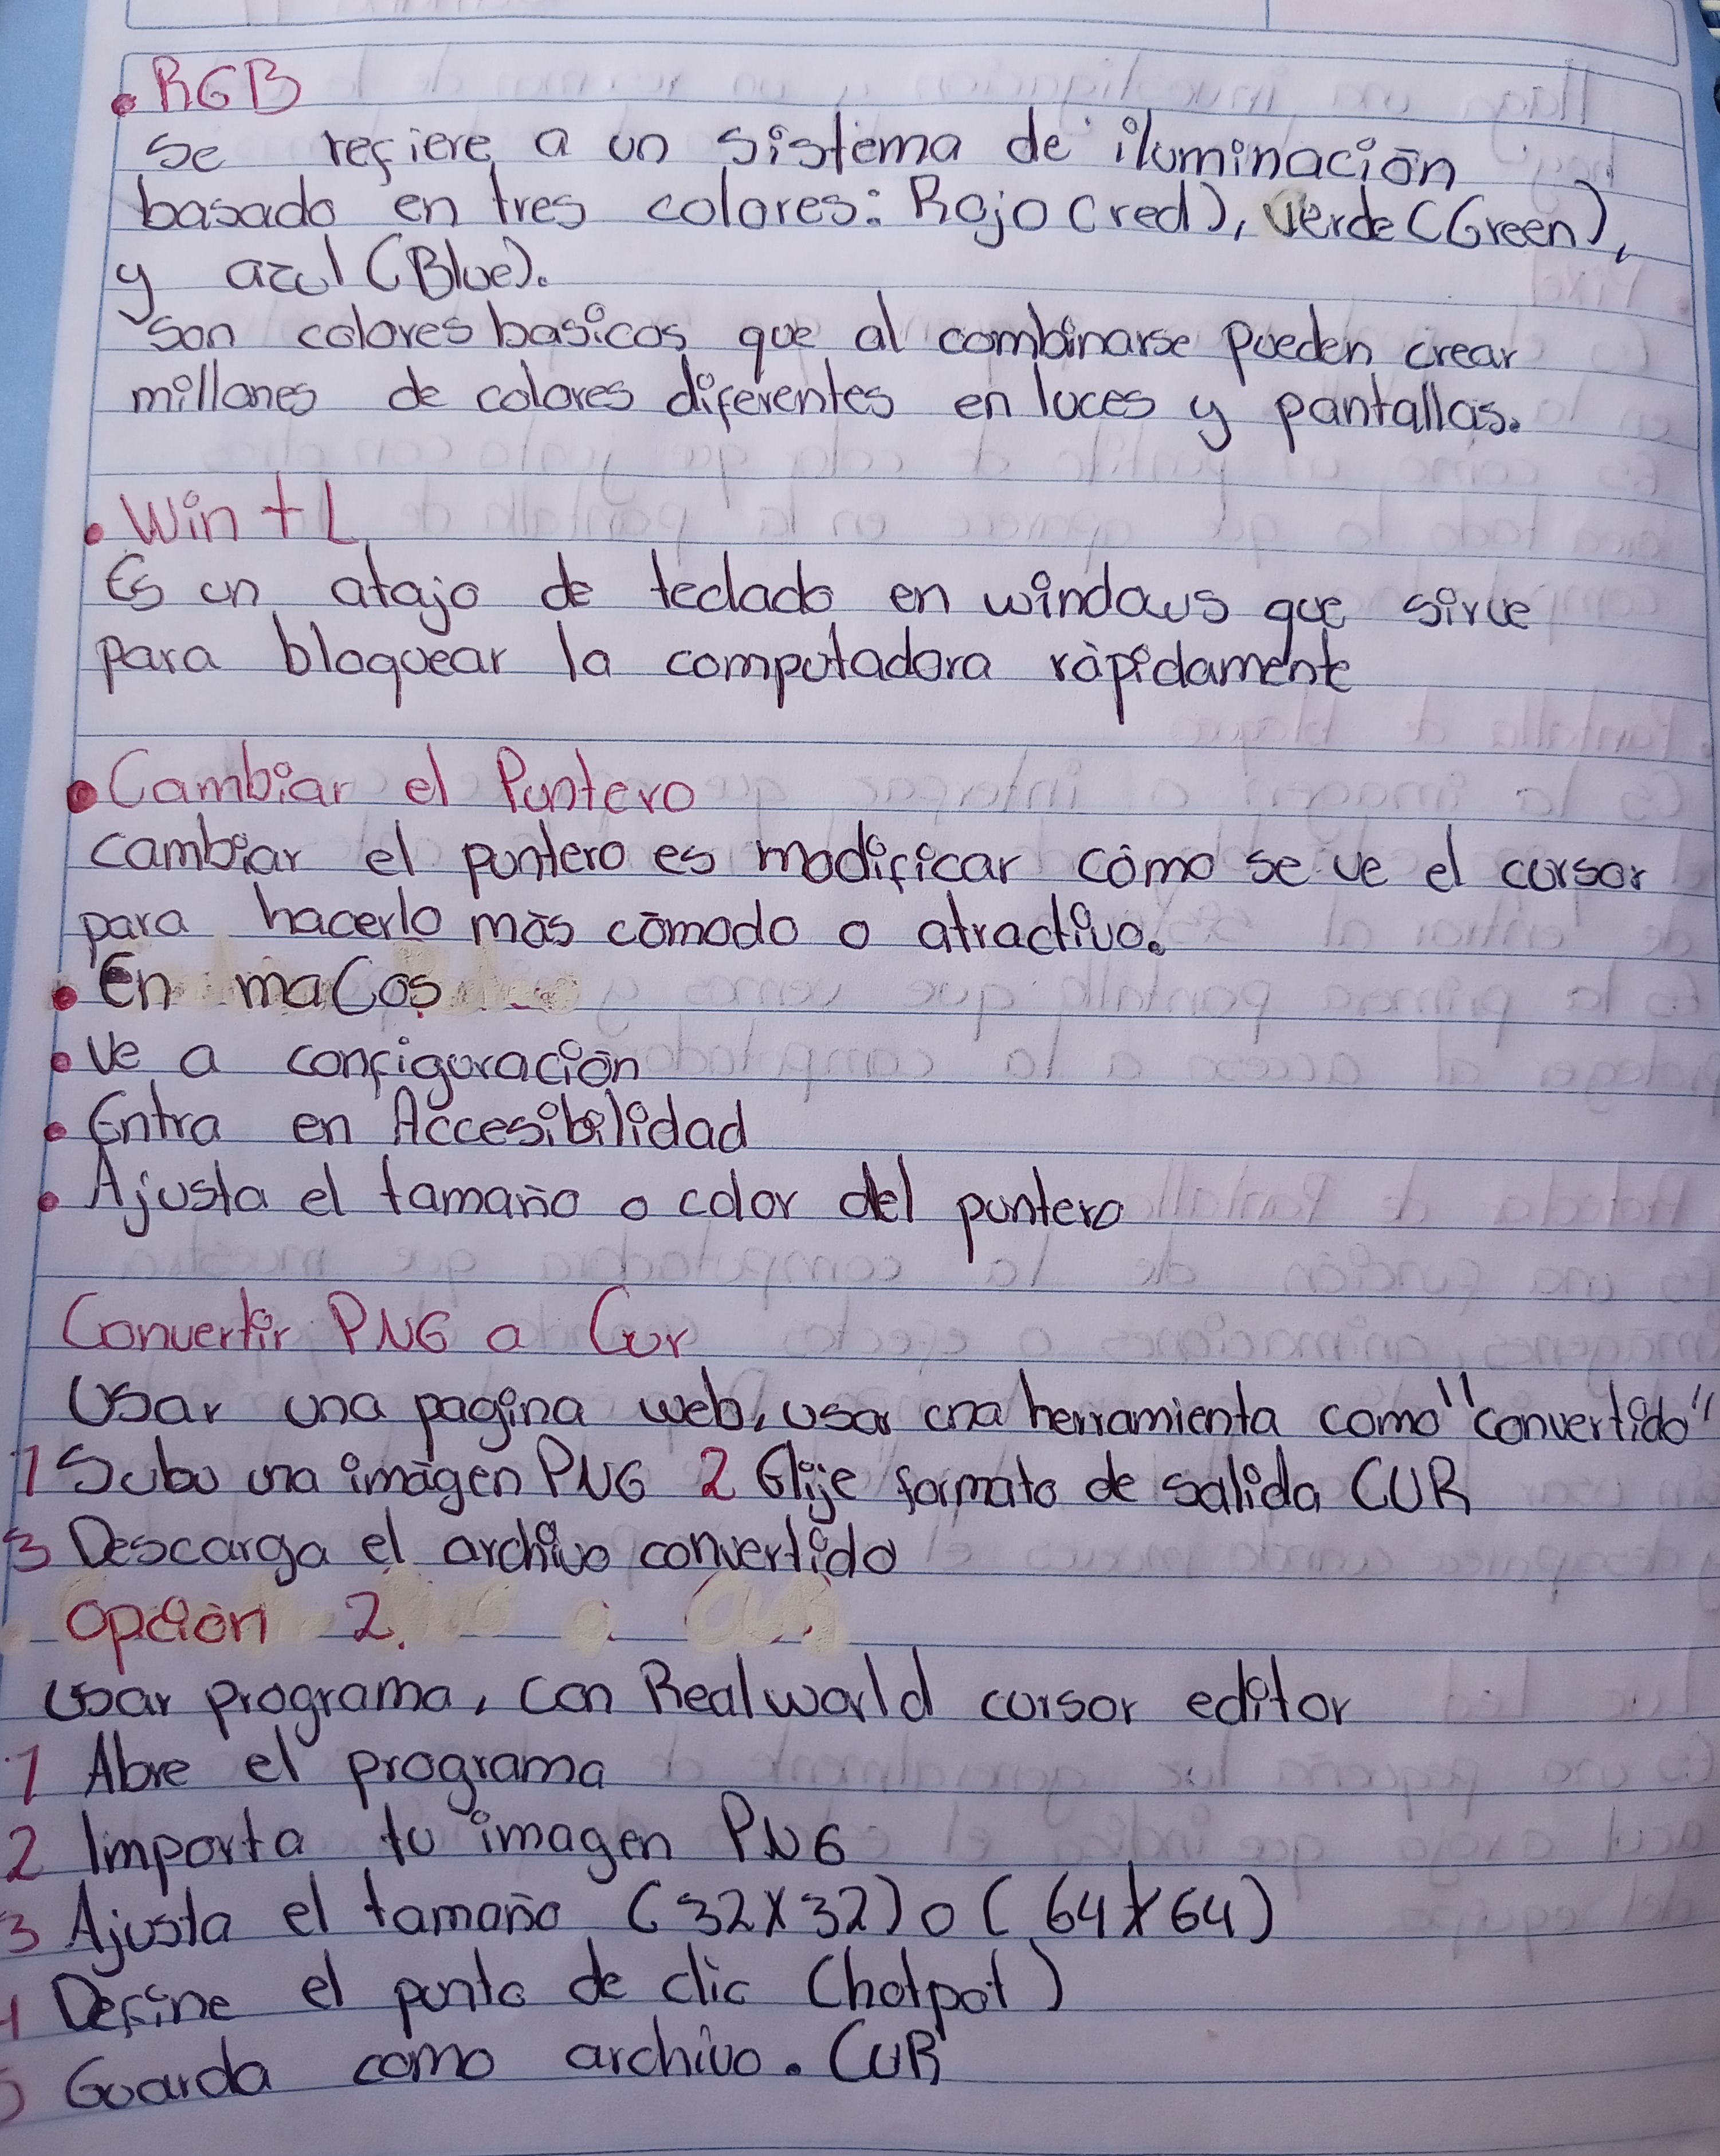 • RGB
Se refiere a un sistema de iluminación
basado en tres colores: Rojo (red), Verde (Green),
y azul (Blue).
Son colores basicos que al combinarse pueden crear
millones de colores diferentes en luces y pantallas.
• Win + L
Es un atajo de teclado en windows que sirve
para bloquear la computadora rápidamente
• Cambiar el Puntero
cambiar el puntero es modificar cómo se ve el cursor
para hacerlo más cómodo o atractivo.
• En macOs
• Ve a configuración
• Entra en Accesibilidad
• Ajusta el tamaño o color del puntero
Convertir PNG a Cur
Usar una pagina web, usar una herramienta como "convertido"
1 Subo una imágen PNG 2 Elije formato de salida CUR
3 Descarga el archivo convertido
Opción 2.
Usar programa, con Realworld cursor editor
1 Abre el programa
2 Importa tu imagen PNG
3 Ajusta el tamaño (32x32) o (64x64)
4 Define el punto de clic (hotpot)
5 Guarda como archivo. CUR